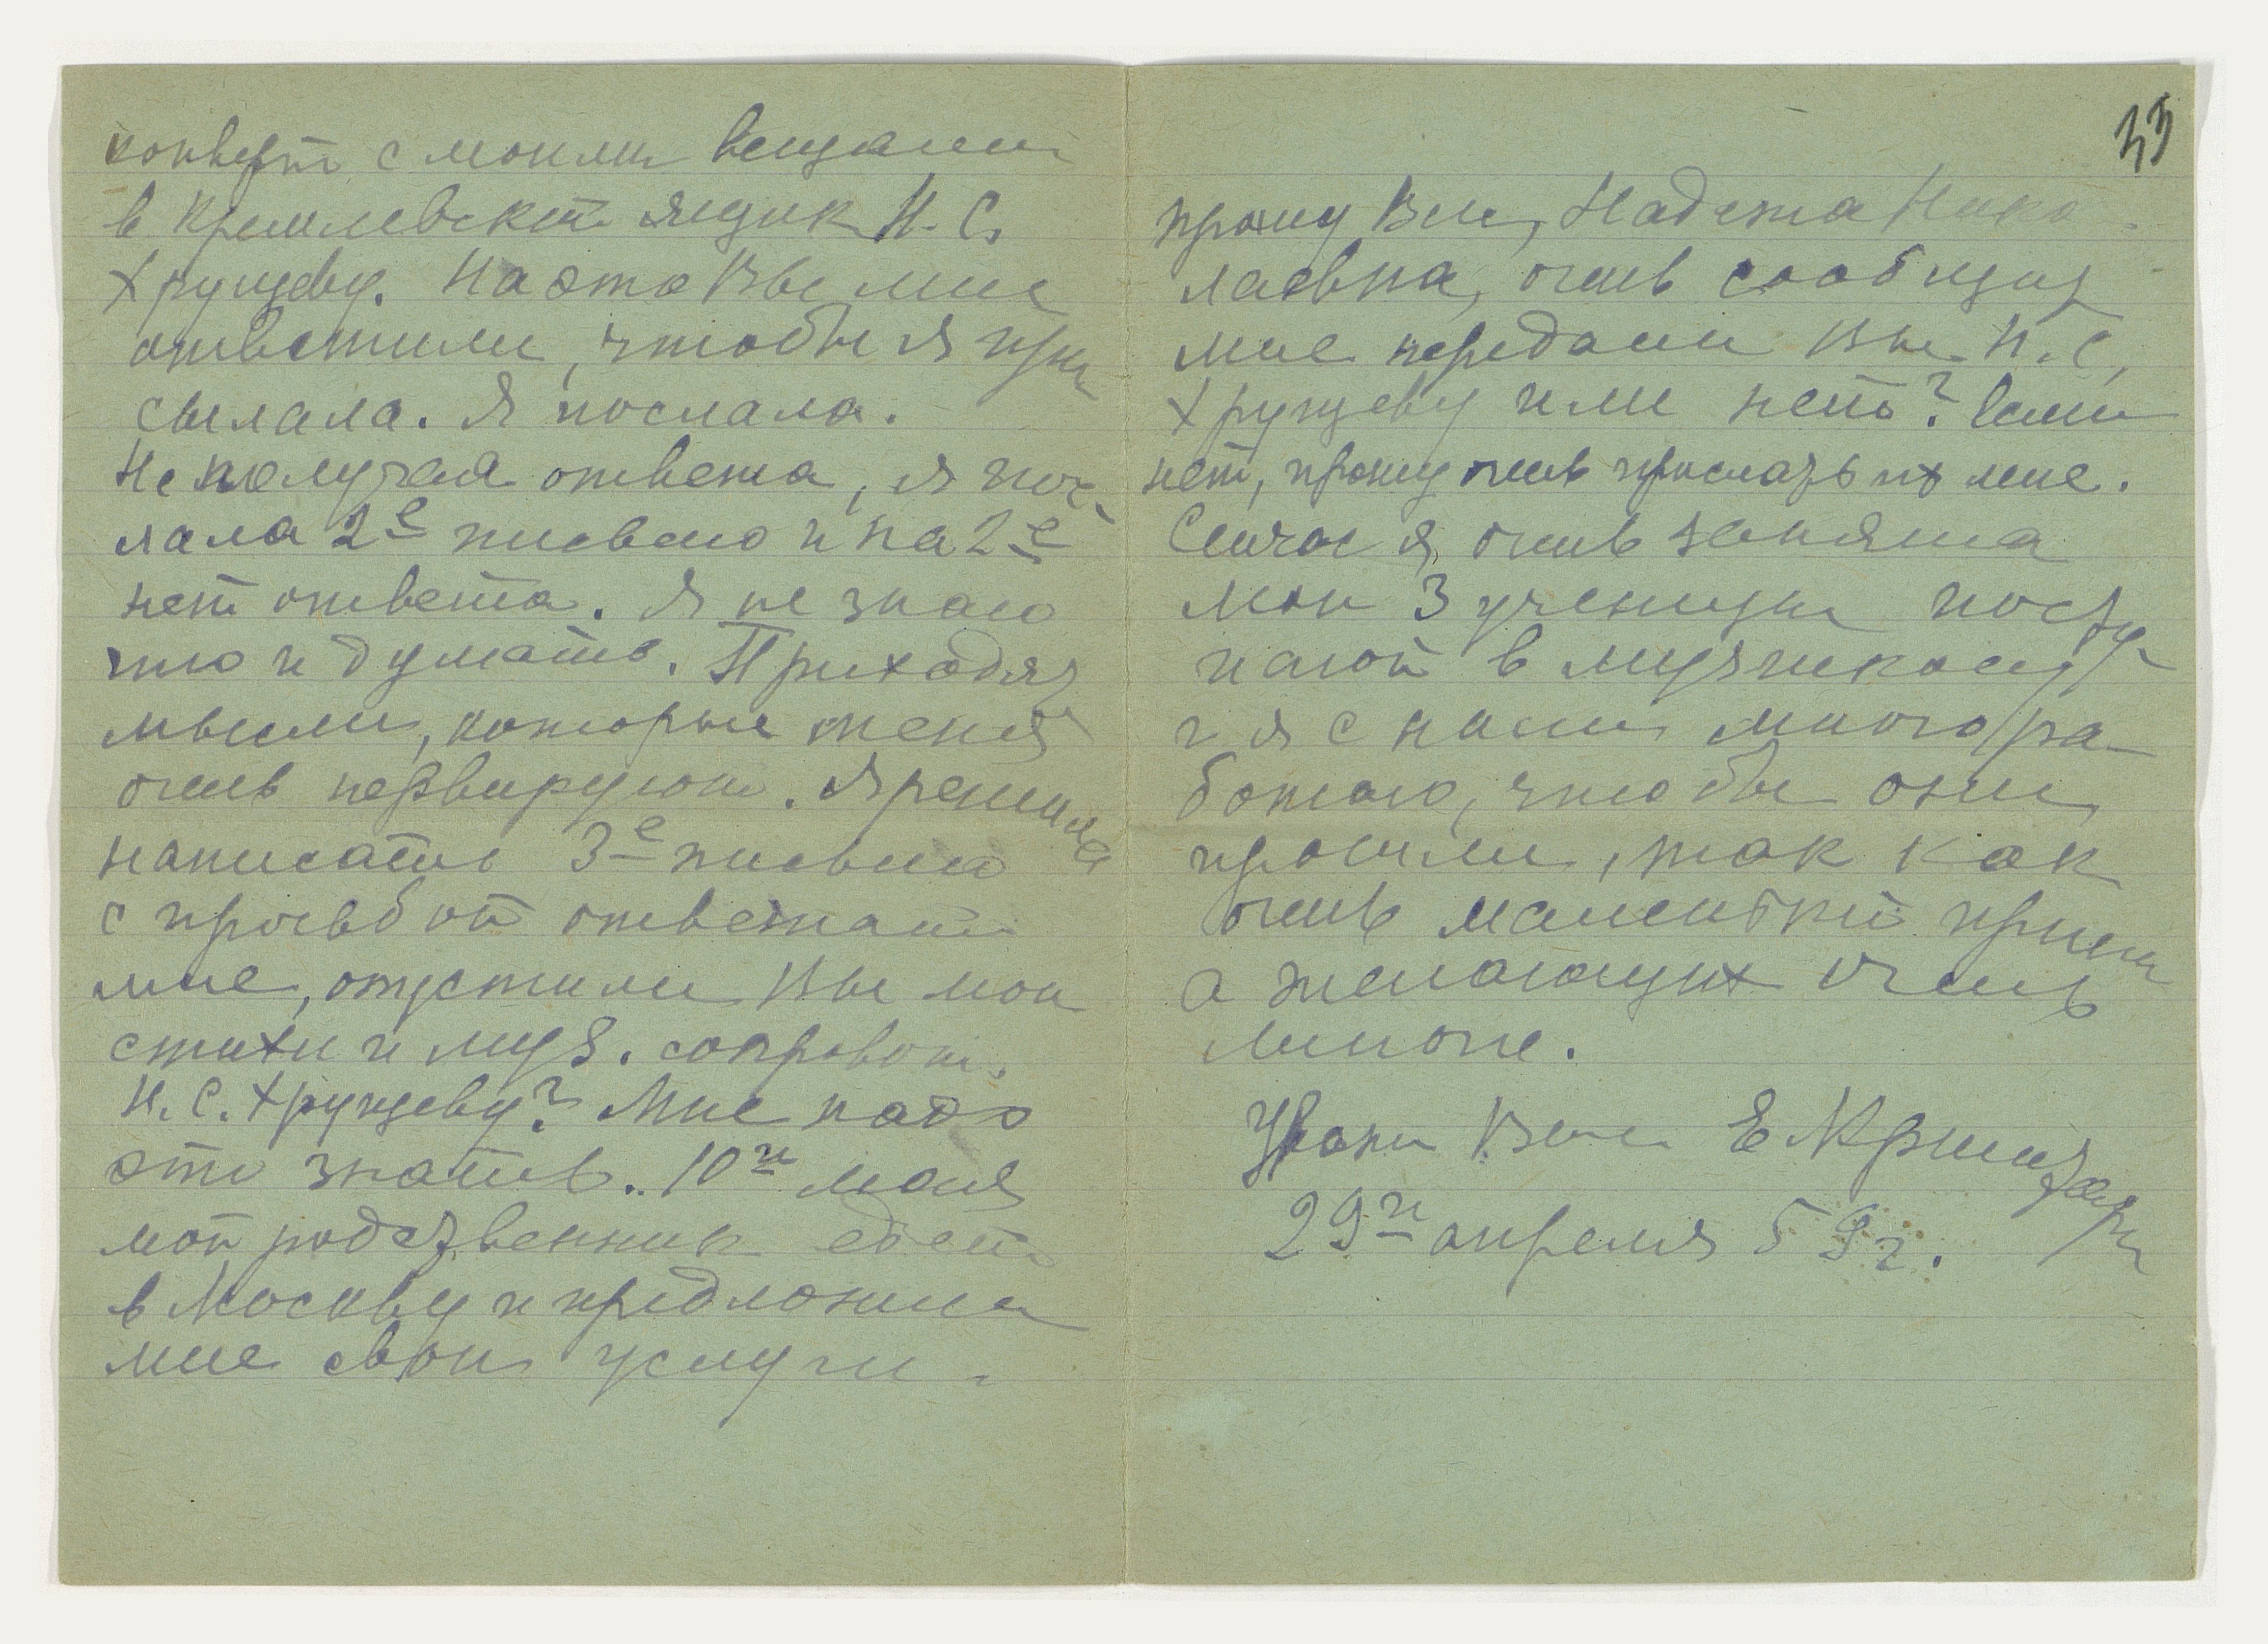 конверт с моими вещами
в Кремлевский ящик Н. С.
Хрущеву. На это Вы мне
ответили, чтобы я при
сылала. Я послала.
Не получая ответа, я пос-
лала 2е письмо и на 2е
нет ответа. Я не знаю
что и думать. Приходят
мысли, которые меня
очень нервируют. Я решила
написать 3е письмо
с просьбой ответить
мне, опустили Вы мои
стихи и муз. сопровож.
Н. С. Хрущеву? Мне надо
это знать. 10го мая
мой родственник едет
в Москву и предложил
мне свои услуги.
33
прошу Вас, Надежда Нико-
лаевна, очень сообщить
мне передали Вы Н. С.
Хрущеву или нет? Если
нет, прошу очень прислать их мне.
Сейчас я очень занята
мои 3 ученицы посту-
пают в музшколу
и я с ними много ра-
ботаю, чтобы они
прошли, так как
очень маленький прием
а желающих очень
многие.
Ваша Е
29го апреля 59 г.